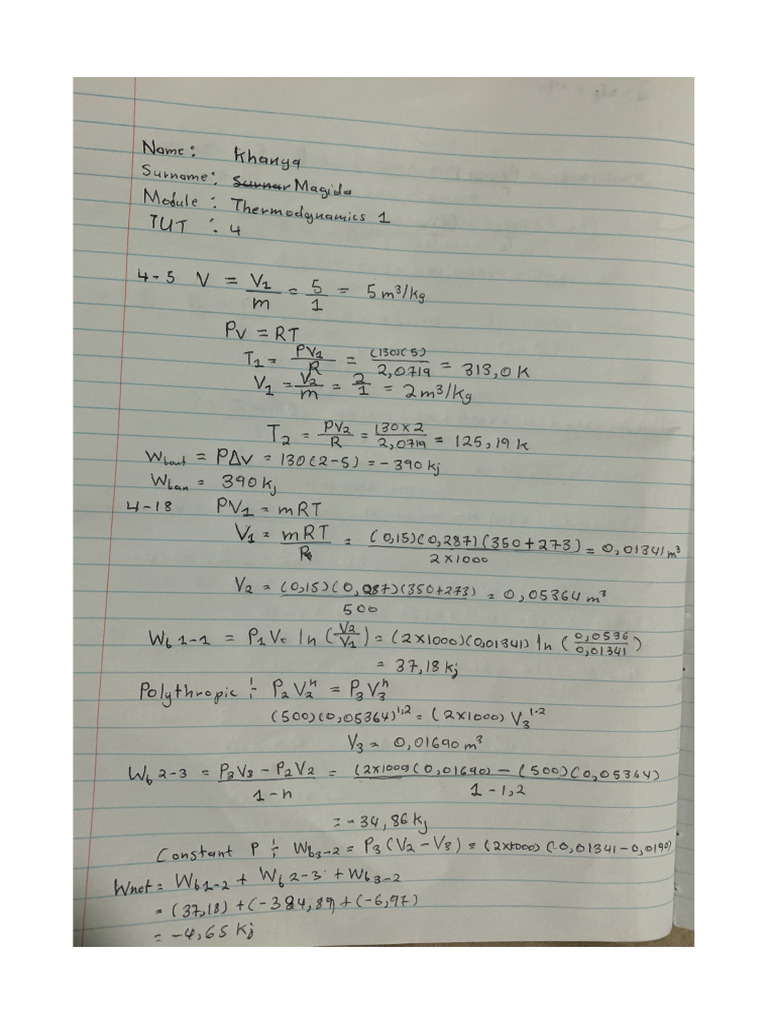 Name: Khanya
Surname: Surnar Magida
Module: Thermodynamics 1
TUT : 4
4-5 V = V1/m = 5/1 = 5 m³/kg
PV = RT
T1 = PV1/R = (130)(5)/2,0719 = 313,0 K
V1 = V2/m = 2/1 = 2 m³/kg
T2 = PV2/R = 130×2/2,0719 = 125,19 k
Wbout = PΔV = 130(2-5) = -390 kj
Wban = 390 kj
4-18 PV1 = mRT
V1 = mRT/R = (0,15)(0,287)(350+273)/2×1000 = 0,01341 m³
V2 = (0,15)(0,087)(350+273)/500 = 0,05364 m³
Wb 1-1 = P1V= ln(V2/V1) = (2×1000)(0,01341) ln (0,0536/0,01341)
= 37,18 kj
Polythropic :- P2V2ⁿ = P3V3ⁿ
(500)(0,05364)^1,2 = (2×1000) V3^1.2
V3 = 0,01690 m³
Wb 2-3 = P3V3 - P2V2/1-n = (2×1000)(0,01690) - (500)(0,05364)/1-1,2
= -34,86 kj
Constant P :- Wb3-2 = P3(V2-V3) = (2×1000)(0,01341-0,0190)
Wnet = Wb1-2 + Wb 2-3 + Wb3-2
= (37,18) + (-34,87) + (-6,97)
= -4,65 Kj